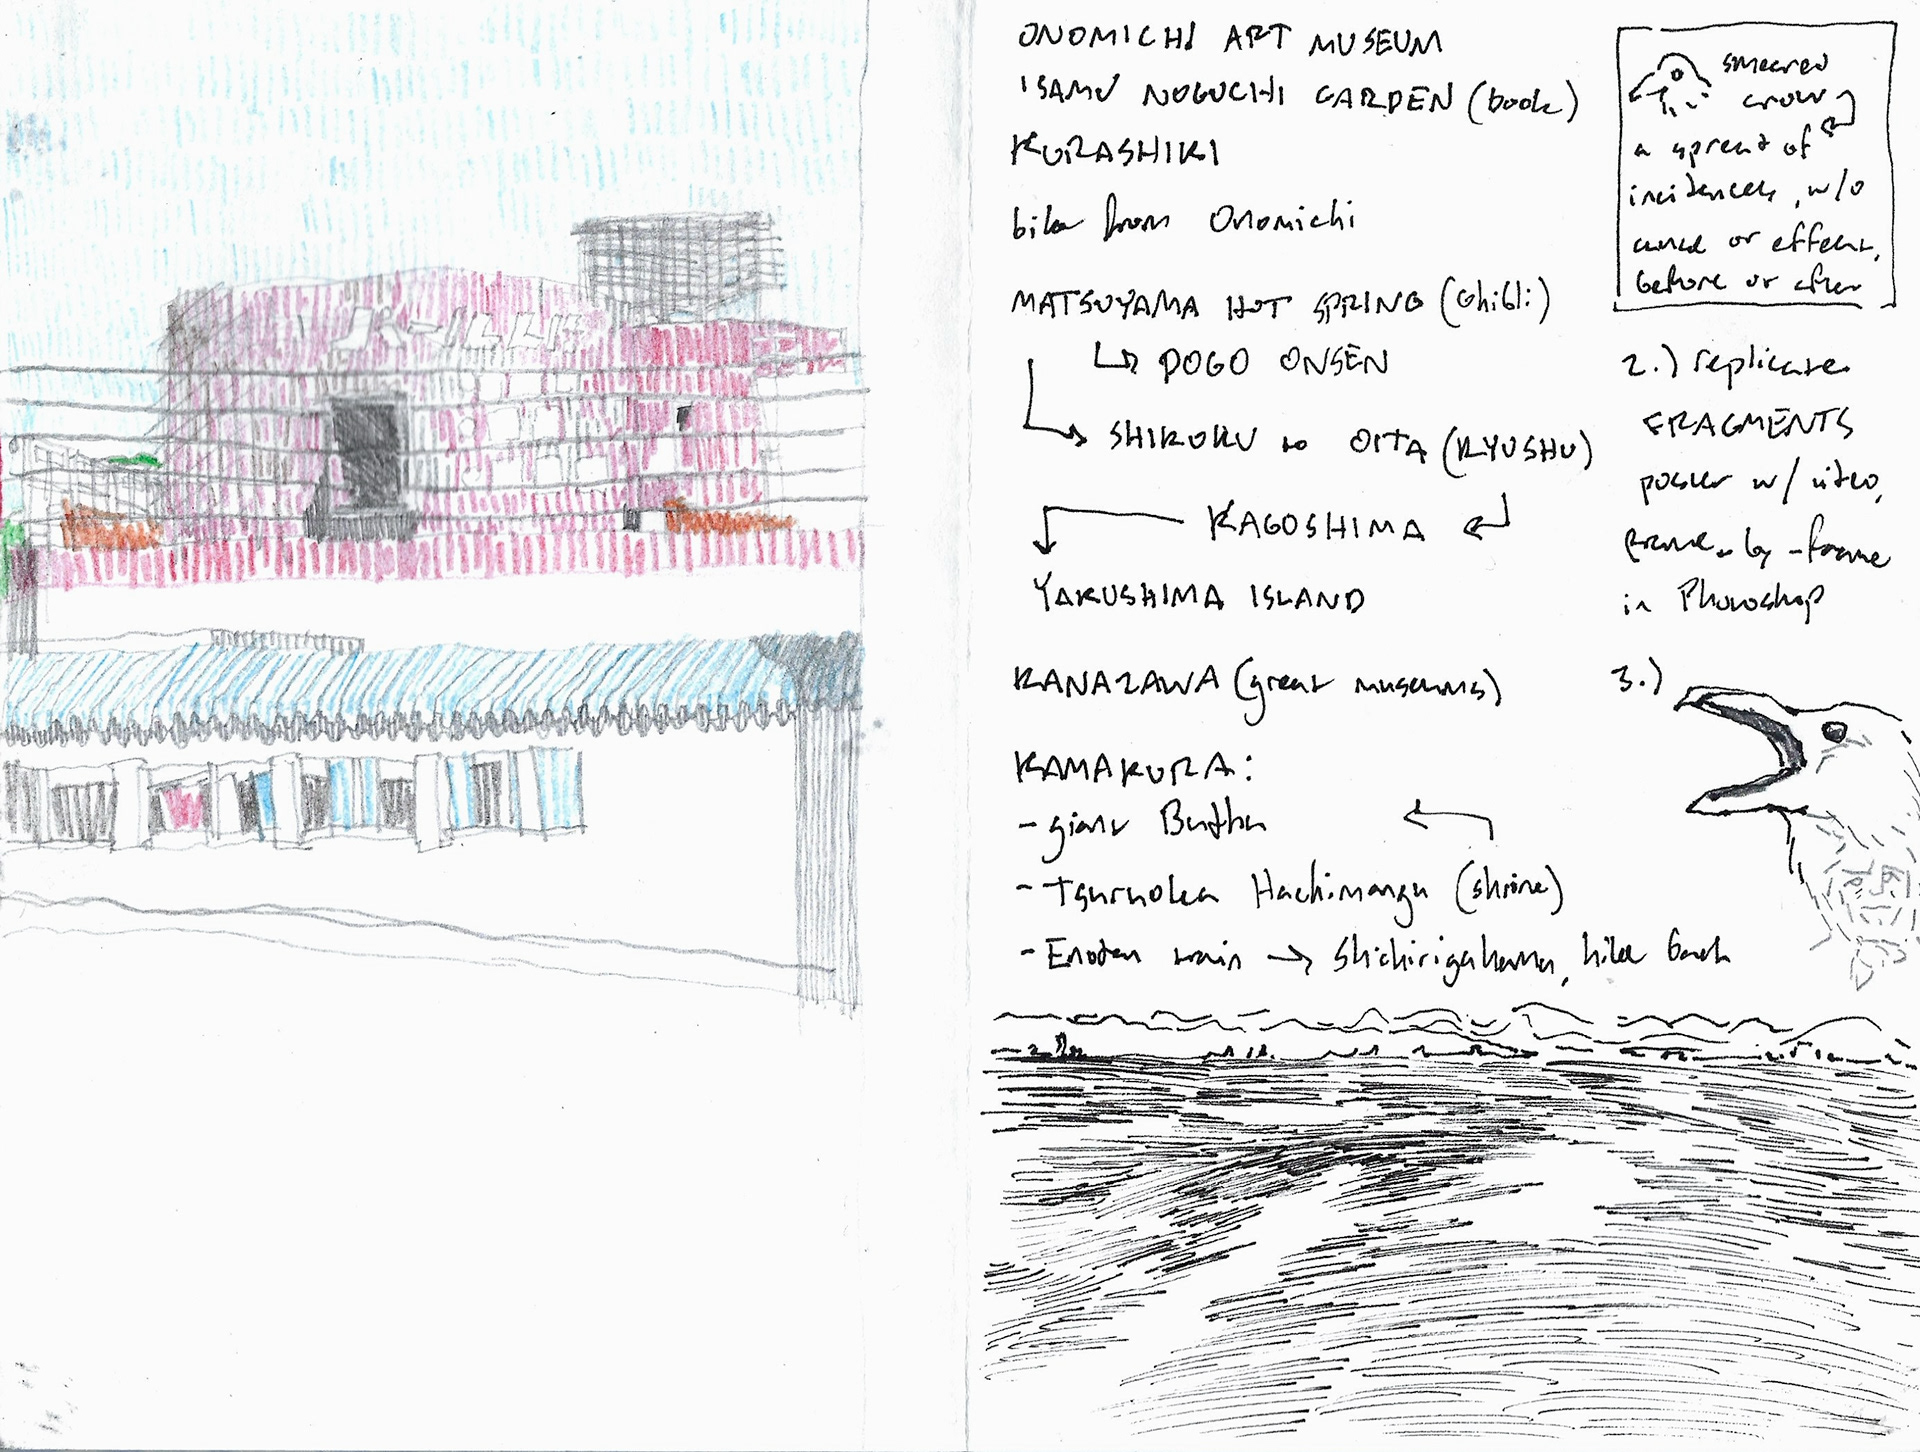 ONOMICHI ART MUSEUM
ISAMU NOGUCHI GARDEN (book)
KURASHIKI
bike from Onomichi
MATSUYAMA HOT SPRING (Ghibli)
DOGO ONSEN
SHIKOKU to OITA (KYUSHU)
KAGOSHIMA
YAKUSHIMA ISLAND
KANAZAWA (great museums)
KAMAKURA:
- giant Buddha
- Tsuruoka Hachimangu (shrine)
- Enoden train → Shichirigahama, hike back
smeared
crow
a spread of
incidences, w/o
cause or effect,
before or after
2.) replicate
FRAGMENTS
poster w/ video,
frame-by-frame
in Photoshop
3.)